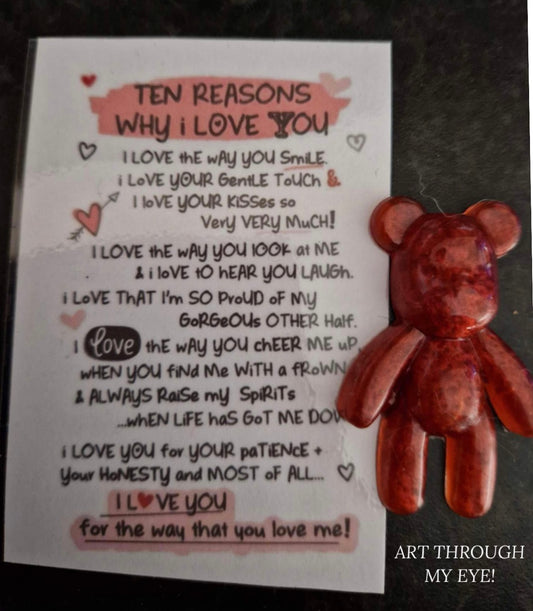 TEN REASONS
WHY i LOVE YOU
I LOVE thE wAY YOU SmiLE.
i LoVE YOUR GentLE ToUCh &
I loVE YOUR KiSSes so
VerY VERY MuCH!
I LOVE thE wAY YOU lOOK at ME
& i loVE tO hEAR YOU LAUgh.
i LoVE ThAT I'm SO ProUD oF MY
GoRGeOUs OTHER Half.
I love thE wAY YOU chEER ME uP,
wHEN YOU fiNd Me WiTH a fRoWN
& ALWAYS RaiSe my SpiRiTs
...whEN LiFE haS GoT ME
i LOVE YOU for YOUR paTiENcE +
YOur HoNESTY and MOST oF ALL...
I LOVE YOU
for the way that you love me!
ART THROUGH
MY EYE!